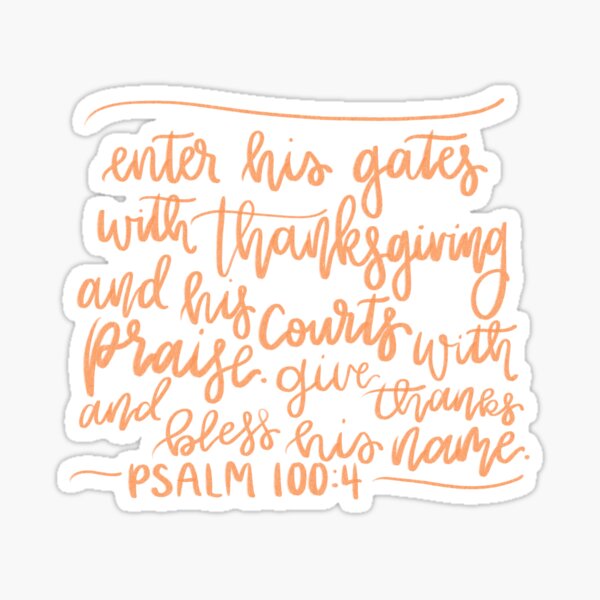 enter his gates
with thanksgiving
and his courts with
praise. give thanks
and bless his name.
PSALM 100:4